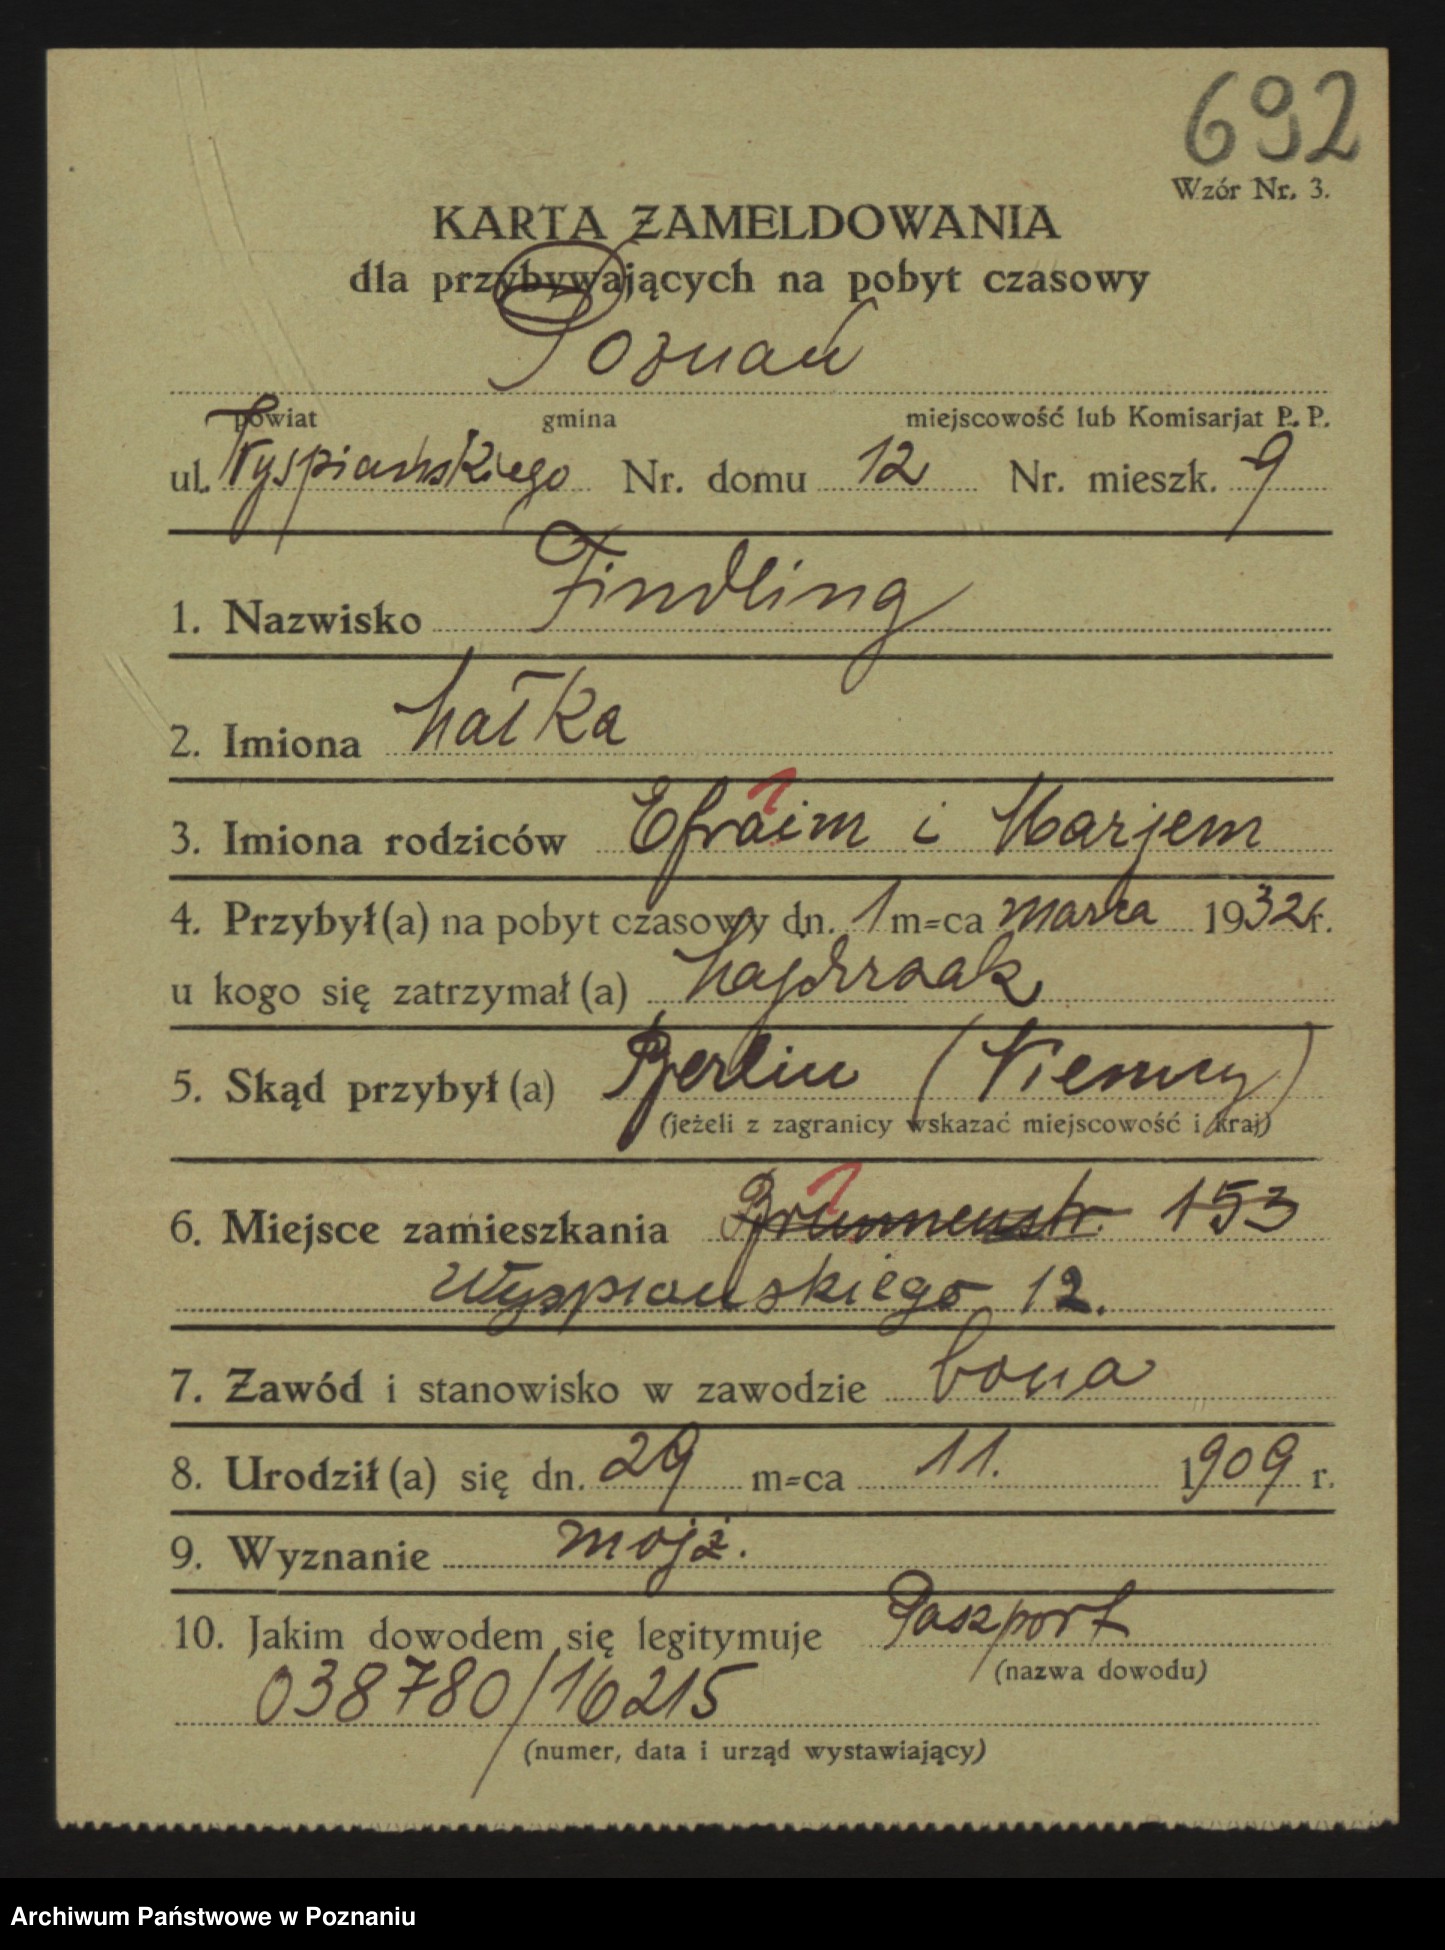 692
Wzór Nr. 3.
KARTA ZAMELDOWANIA
dla przybywających na pobyt czasowy
Poznań
powiat gmina miejscowość lub Komisarjat P. P.
ul. Wyspiańskiego Nr. domu 12 Nr. mieszk. 9
1. Nazwisko Findling
2. Imiona Małka
3. Imiona rodziców Efraim i Marjem
4. Przybył(a) na pobyt czasowy dn. 1 m=ca marca 1932 r.
u kogo się zatrzymał(a)
5. Skąd przybył(a) Berlin (Niemcy)
(jeżeli z zagranicy wskazać miejscowość i kraj)
6. Miejsce zamieszkania Brunnenstr. 153
Wyspiańskiego 12.
7. Zawód i stanowisko w zawodzie bona
8. Urodził(a) się dn. 29 m=ca 11. 1909 r.
9. Wyznanie mojż.
10. Jakim dowodem się legitymuje Paszport
(nazwa dowodu)
038780/16215
(numer, data i urząd wystawiający)
Archiwum Państwowe w Poznaniu